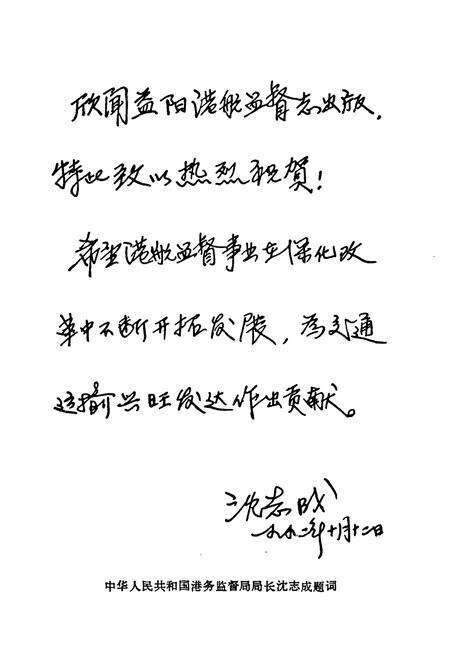 欣闻益阳港航监督志出版，
特此致以热烈祝賀！
希望港航监督事业在深化改
革中不断开拓发展，为交通
运输兴旺发达作出贡献。
沈志成
一九九二年十月十二日
中华人民共和国港务监督局局长沈志成题词